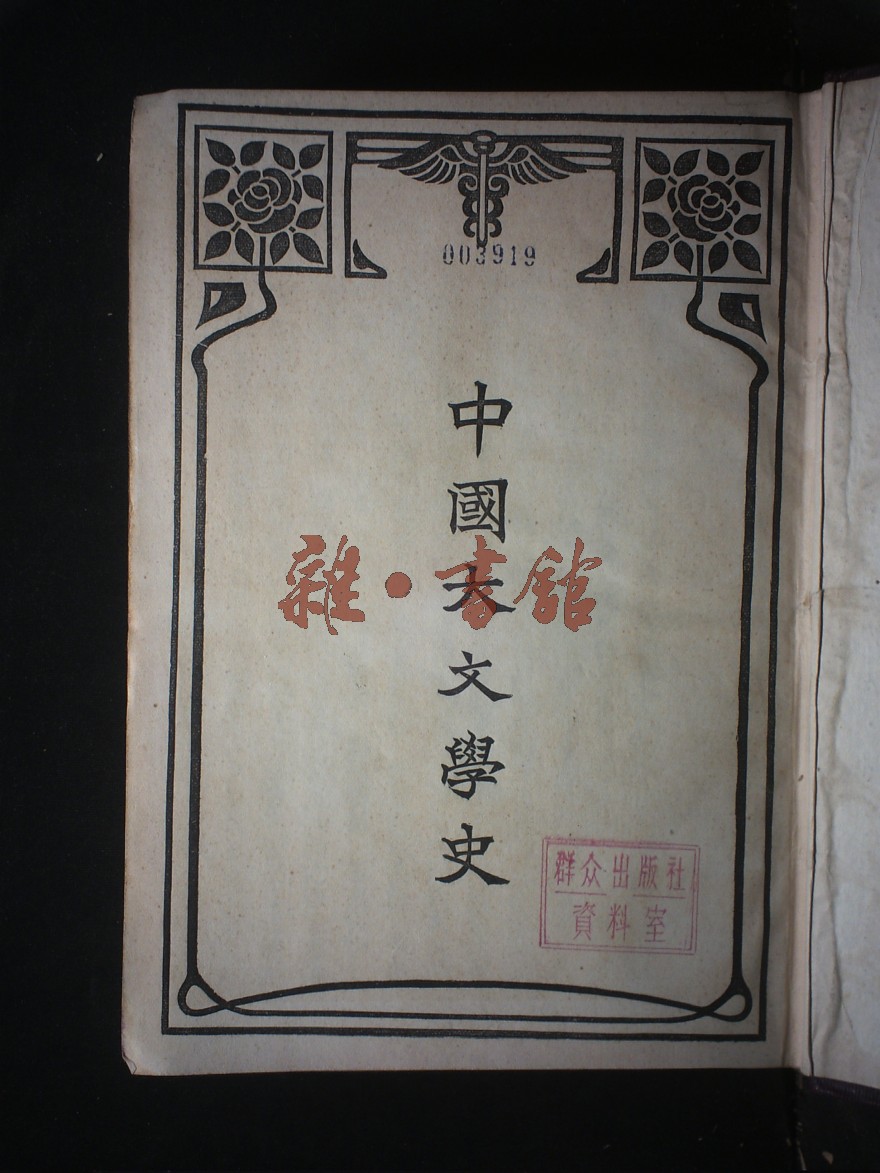 003919
中國大文學史
雜·書館
群众出版社
資料室